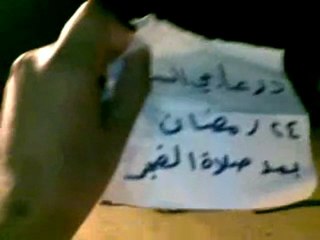 درعا
٢٤ رمضان
بعد صلاة الفجر